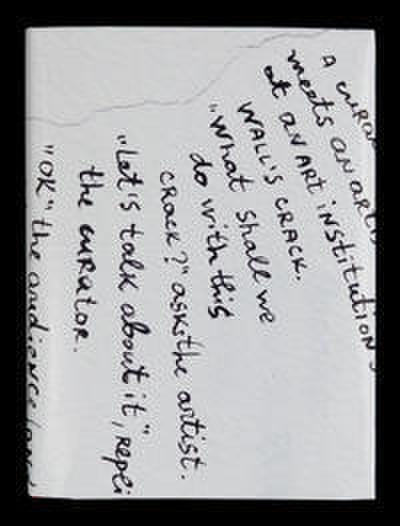 A CURA
meets an arti
at an art institution
WALL'S CRACK.
"What shall we
do with this
crack?" ask the artist.
"Let's talk about it", repli
the curator.
"OK" the audience